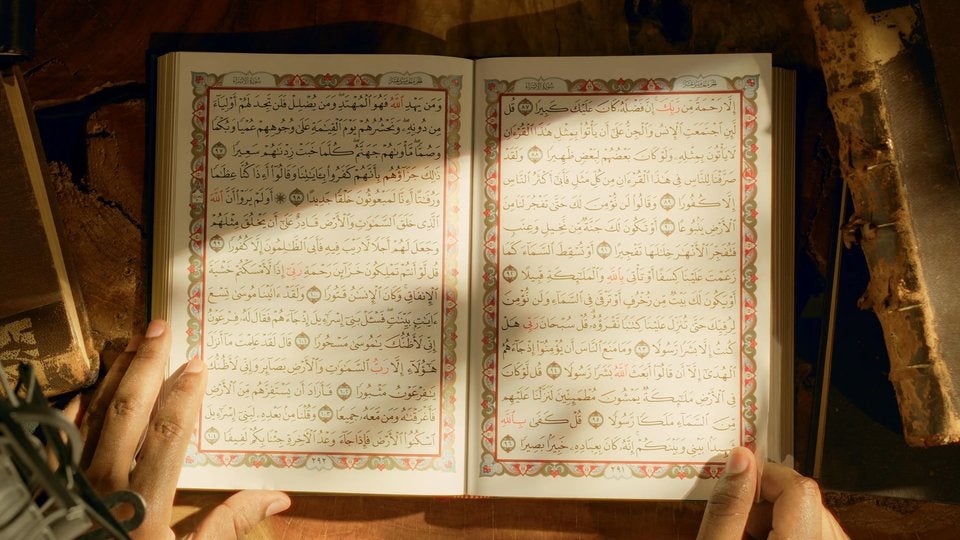 الجزء الخامس عشر سورة الإسراء
إِلَّا رَحْمَةً مِّن رَّبِّكَ إِنَّ فَضْلَهُۥ كَانَ عَلَيْكَ كَبِيرًا ٨٧ قُل
لَّئِنِ ٱجْتَمَعَتِ ٱلْإِنسُ وَٱلْجِنُّ عَلَىٰٓ أَن يَأْتُوا۟ بِمِثْلِ هَٰذَا ٱلْقُرْءَانِ
لَا يَأْتُونَ بِمِثْلِهِۦ وَلَوْ كَانَ بَعْضُهُمْ لِبَعْضٍ ظَهِيرًا ٨٨ وَلَقَدْ
صَرَّفْنَا لِلنَّاسِ فِى هَٰذَا ٱلْقُرْءَانِ مِن كُلِّ مَثَلٍ فَأَبَىٰٓ أَكْثَرُ ٱلنَّاسِ
إِلَّا كُفُورًا ٨٩ وَقَالُوا۟ لَن نُّؤْمِنَ لَكَ حَتَّىٰ تَفْجُرَ لَنَا مِنَ
ٱلْأَرْضِ يَنۢبُوعًا ٩٠ أَوْ تَكُونَ لَكَ جَنَّةٌ مِّن نَّخِيلٍ وَعِنَبٍ
فَتُفَجِّرَ ٱلْأَنْهَٰرَ خِلَٰلَهَا تَفْجِيرًا ٩١ أَوْ تُسْقِطَ ٱلسَّمَآءَ كَمَا
زَعَمْتَ عَلَيْنَا كِسَفًا أَوْ تَأْتِىَ بِٱللَّهِ وَٱلْمَلَٰٓئِكَةِ قَبِيلًا ٩٢
أَوْ يَكُونَ لَكَ بَيْتٌ مِّن زُخْرُفٍ أَوْ تَرْقَىٰ فِى ٱلسَّمَآءِ وَلَن نُّؤْمِنَ
لِرُقِيِّكَ حَتَّىٰ تُنَزِّلَ عَلَيْنَا كِتَٰبًا نَّقْرَؤُهُۥ قُلْ سُبْحَانَ رَبِّى هَلْ
كُنتُ إِلَّا بَشَرًا رَّسُولًا ٩٣ وَمَا مَنَعَ ٱلنَّاسَ أَن يُؤْمِنُوٓا۟ إِذْ جَآءَهُمُ
ٱلْهُدَىٰٓ إِلَّآ أَن قَالُوٓا۟ أَبَعَثَ ٱللَّهُ بَشَرًا رَّسُولًا ٩٤ قُل لَّوْ كَانَ
فِى ٱلْأَرْضِ مَلَٰٓئِكَةٌ يَمْشُونَ مُطْمَئِنِّينَ لَنَزَّلْنَا عَلَيْهِم
مِّنَ ٱلسَّمَآءِ مَلَكًا رَّسُولًا ٩٥ قُلْ كَفَىٰ بِٱللَّهِ
شَهِيدًۢا بَيْنِى وَبَيْنَكُمْ إِنَّهُۥ كَانَ بِعِبَادِهِۦ خَبِيرًۢا بَصِيرًا ٩٦
٢٩١
الجزء الخامس عشر سورة الإسراء
وَمَن يَهْدِ ٱللَّهُ فَهُوَ ٱلْمُهْتَدِ وَمَن يُضْلِلْ فَلَن تَجِدَ لَهُمْ أَوْلِيَآءَ
مِن دُونِهِۦ وَنَحْشُرُهُمْ يَوْمَ ٱلْقِيَٰمَةِ عَلَىٰ وُجُوهِهِمْ عُمْيًا وَبُكْمًا
وَصُمًّا مَّأْوَىٰهُمْ جَهَنَّمُ كُلَّمَا خَبَتْ زِدْنَٰهُمْ سَعِيرًا ٩٧
ذَٰلِكَ جَزَآؤُهُم بِأَنَّهُمْ كَفَرُوا۟ بِـَٔايَٰتِنَا وَقَالُوٓا۟ أَءِذَا كُنَّا عِظَٰمًا
وَرُفَٰتًا أَءِنَّا لَمَبْعُوثُونَ خَلْقًا جَدِيدًا ٩٨ ۞ أَوَلَمْ يَرَوْا۟ أَنَّ ٱللَّهَ
ٱلَّذِى خَلَقَ ٱلسَّمَٰوَٰتِ وَٱلْأَرْضَ قَادِرٌ عَلَىٰٓ أَن يَخْلُقَ مِثْلَهُمْ
وَجَعَلَ لَهُمْ أَجَلًا لَّا رَيْبَ فِيهِ فَأَبَى ٱلظَّٰلِمُونَ إِلَّا كُفُورًا ٩٩
قُل لَّوْ أَنتُمْ تَمْلِكُونَ خَزَآئِنَ رَحْمَةِ رَبِّىٓ إِذًا لَّأَمْسَكْتُمْ خَشْيَةَ
ٱلْإِنفَاقِ وَكَانَ ٱلْإِنسَٰنُ قَتُورًا ١٠٠ وَلَقَدْ ءَاتَيْنَا مُوسَىٰ تِسْعَ
ءَايَٰتٍۭ بَيِّنَٰتٍ فَسْـَٔلْ بَنِىٓ إِسْرَٰٓءِيلَ إِذْ جَآءَهُمْ فَقَالَ لَهُۥ فِرْعَوْنُ
إِنِّى لَأَظُنُّكَ يَٰمُوسَىٰ مَسْحُورًا ١٠١ قَالَ لَقَدْ عَلِمْتَ مَآ أَنزَلَ
هَٰٓؤُلَآءِ إِلَّا رَبُّ ٱلسَّمَٰوَٰتِ وَٱلْأَرْضِ بَصَآئِرَ وَإِنِّى لَأَظُنُّكَ
يَٰفِرْعَوْنُ مَثْبُورًا ١٠٢ فَأَرَادَ أَن يَسْتَفِزَّهُم مِّنَ ٱلْأَرْضِ
فَأَغْرَقْنَٰهُ وَمَن مَّعَهُۥ جَمِيعًا ١٠٣ وَقُلْنَا مِنۢ بَعْدِهِۦ لِبَنِىٓ إِسْرَٰٓءِيلَ
ٱسْكُنُوا۟ ٱلْأَرْضَ فَإِذَا جَآءَ وَعْدُ ٱلْءَاخِرَةِ جِئْنَا بِكُمْ لَفِيفًا ١٠٤
٢٩٢